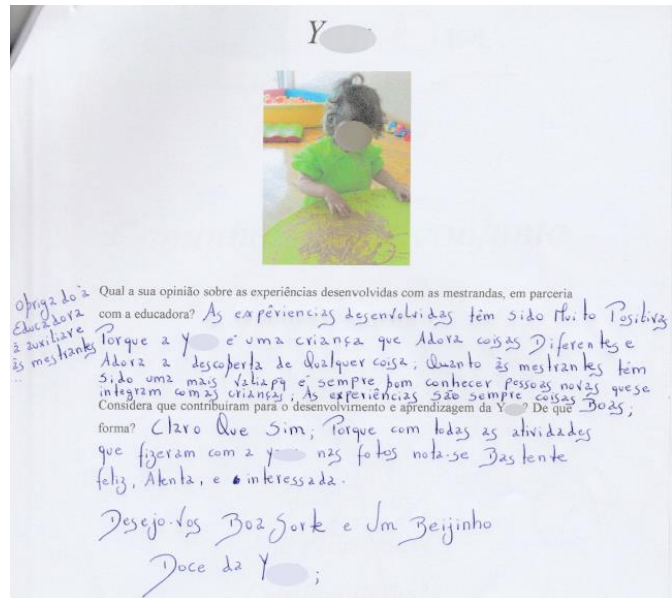 Y
Qual a sua opinião sobre as experiências desenvolvidas com as mestrandas, em parceria
com a educadora? As expêriencias desenvolvidas têm sido Muito Positivas
Porque a Y é uma criança que Adora coisas Diferentes e
Adora a descoberta de Qualquer coisa; Quanto às mestrantes têm
sido uma mais valia pq é sempre bom conhecer pessoas novas que se
integram com as crianças, As experiências são sempre coisas
Boas;
Considera que contribuíram para o desenvolvimento e aprendizagem da Y? De que
forma? Claro Que Sim; Porque com todas as atividades
que fizeram com a y nas fotos nota-se Bastente
feliz, Atenta, e interessada.
Desejo-vos Boa Sorte e Um Beijinho
Doce da Y;
Obrigado à
Educadora
à auxiliar e
às mestrantes
...